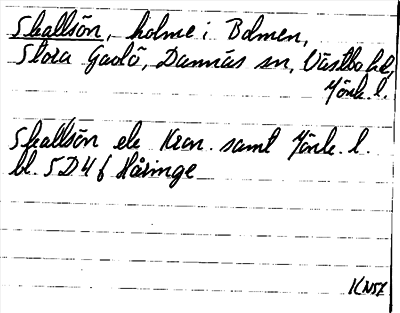 Skallsön, holme i Bolmen,
Stora Gadö, Dannäs sn, Västbo hd,
Jönk. l.
Skallsön ek Kron. samt Jönk. l.
bl. 5D4f Håringe